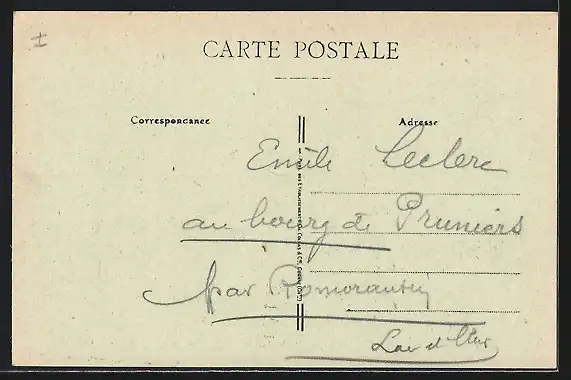 CARTE POSTALE
Correspondance
Adresse
Emile Leclerc
au bourg de Pruniers
par Romorantin
Loir et Cher